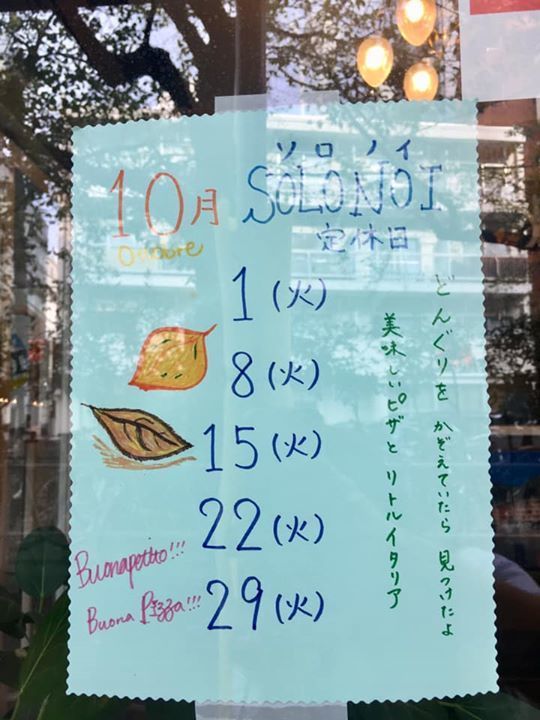 ソロノイ
10月 SOLONOI
Ottobre
定休日
1(火)
8(火)
15(火)
22(火)
29(火)
どんぐりを かぞえていたら 見つけたよ
美味しいピザと リトルイタリア
Buonapetito!!!
Buona Pizza!!!